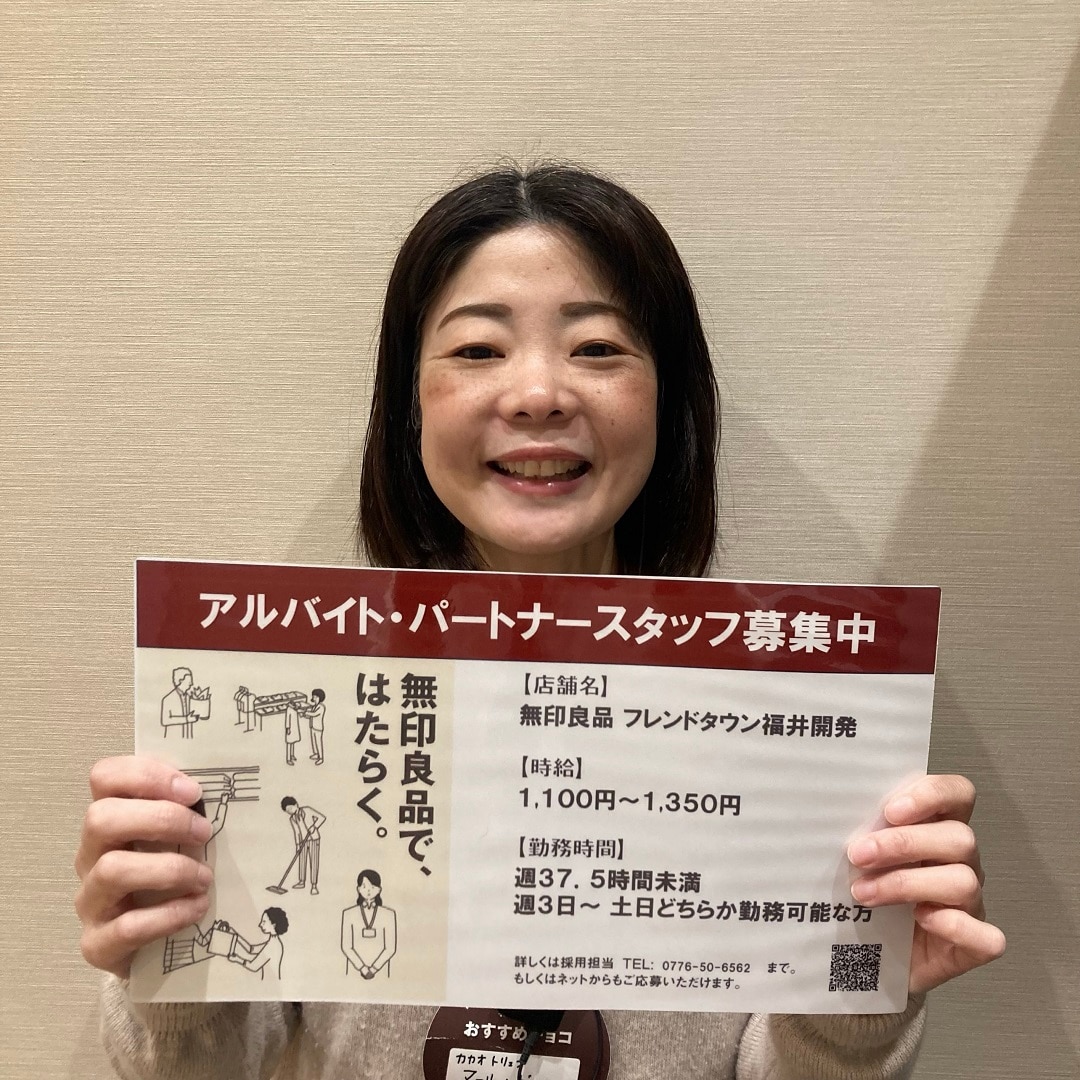 アルバイト・パートナースタッフ募集中
無印良品で、
はたらく。
【店舗名】
無印良品 フレンドタウン福井開発
【時給】
1,100円～1,350円
【勤務時間】
週37．5時間未満
週3日～ 土日どちらか勤務可能な方
詳しくは採用担当 TEL: 0776-50-6562 まで。
もしくはネットからもご応募いただけます。
おすすめチョコ
カカオトリュフ